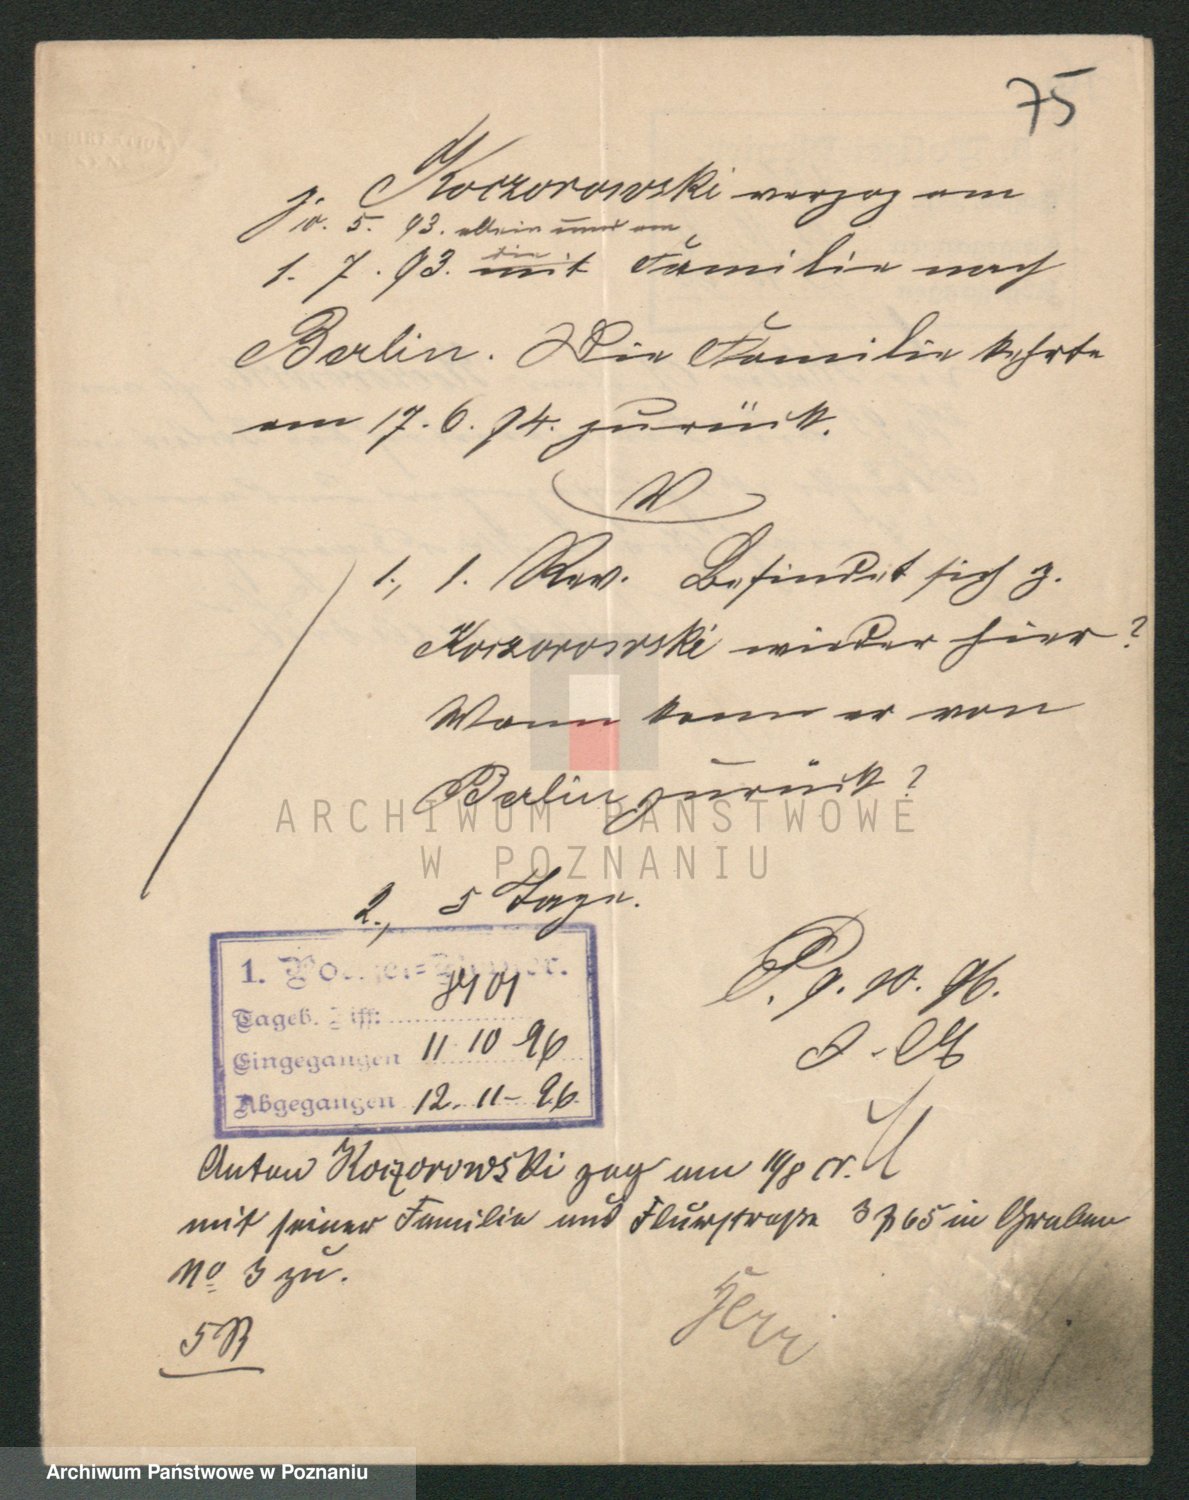 75
p. Koczorowski verzog am
10. 5. 93. allein und am
1. 7. 93. mit die Familie nach
Berlin. Die Familie kehrte
am 17. 6. 94. zurück.
V
1., 1. Rev. Befindet sich p.
Koczorowski wieder hier?
Wann kam er von
Berlin zurück?
ARCHIWUM PAŃSTWOWE
W POZNANIU
2., 5 Tage.
1. Polizei-Revier.
Tageb. Ziff:
Eingegangen 11 10 96
Abgegangen 12. 11 - 96
P. 9. 10. 96.
Anton Koczorowski zog am 10/8 cr.
mit seiner Familie aus Flurstraße 3 365 in Graben
No 3 zu.
5 R
Archiwum Państwowe w Poznaniu